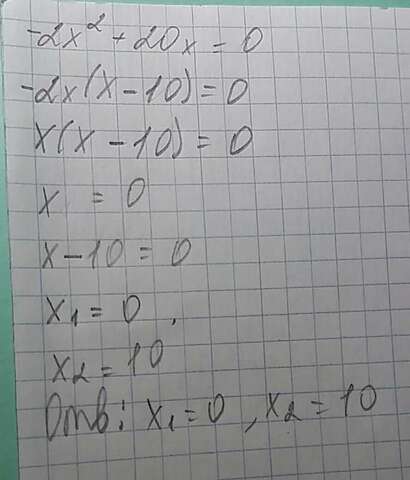 -2x² + 20x = 0
-2x(x - 10) = 0
x(x - 10) = 0
x = 0
x - 10 = 0
x₁ = 0 ,
x₂ = 10
Отв: x₁ = 0 , x₂ = 10